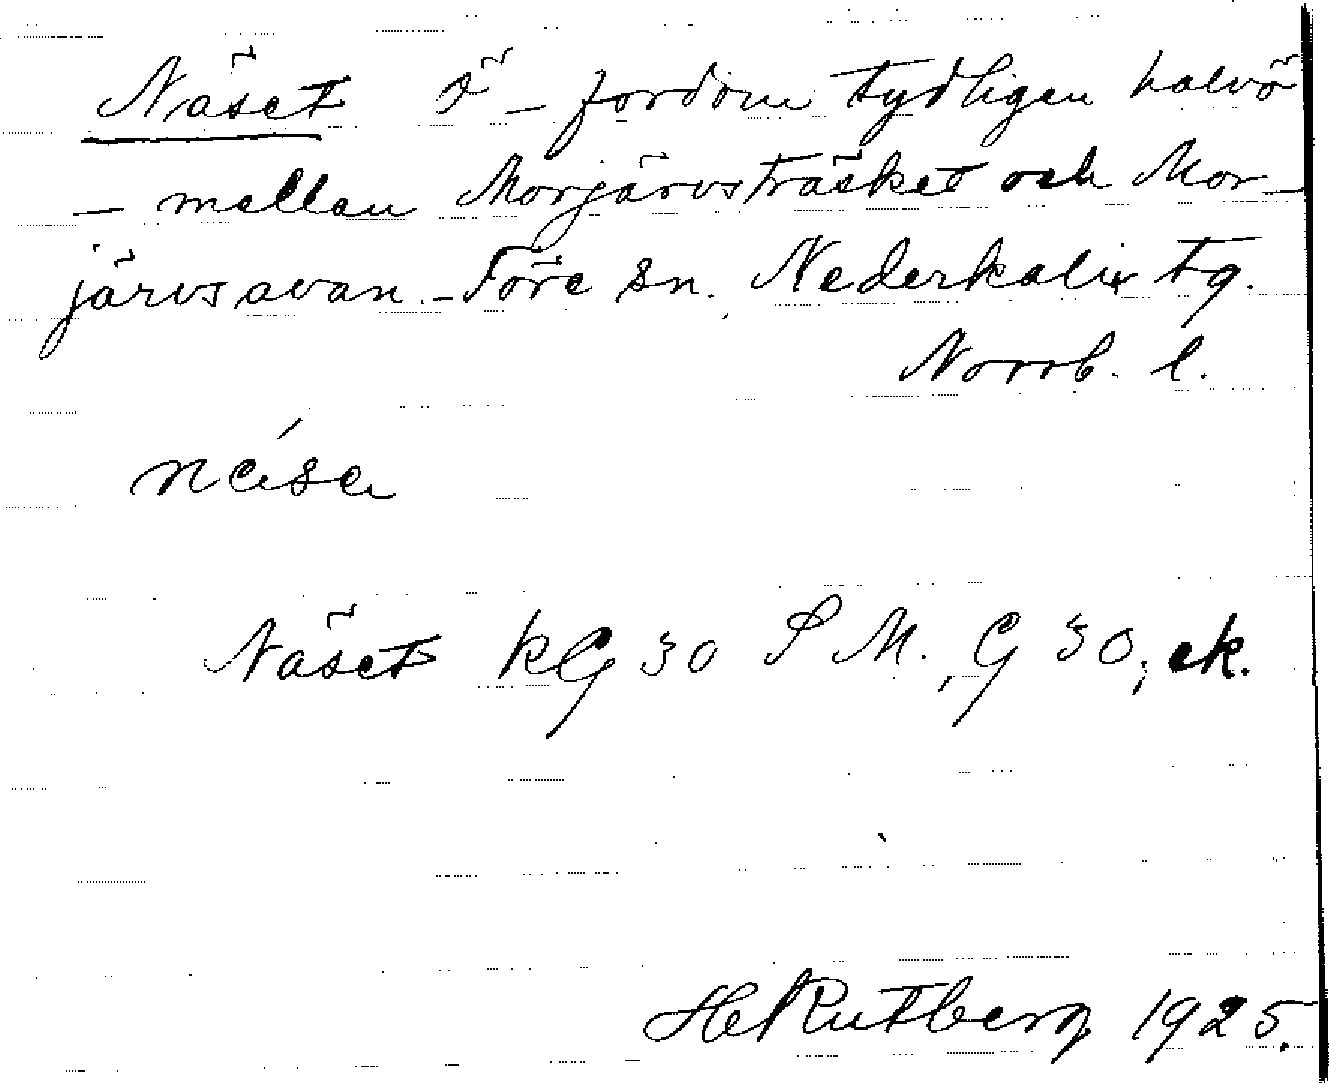 Näset ö – fordom tydligen halvö
– mellan Morjärvsträsket och Mor-
järvsavan. – Töre sn. Nederkalix tg.
Norrb. l.
Näset kG 30 S M., G 30; ek.
H Rutberg 1925.